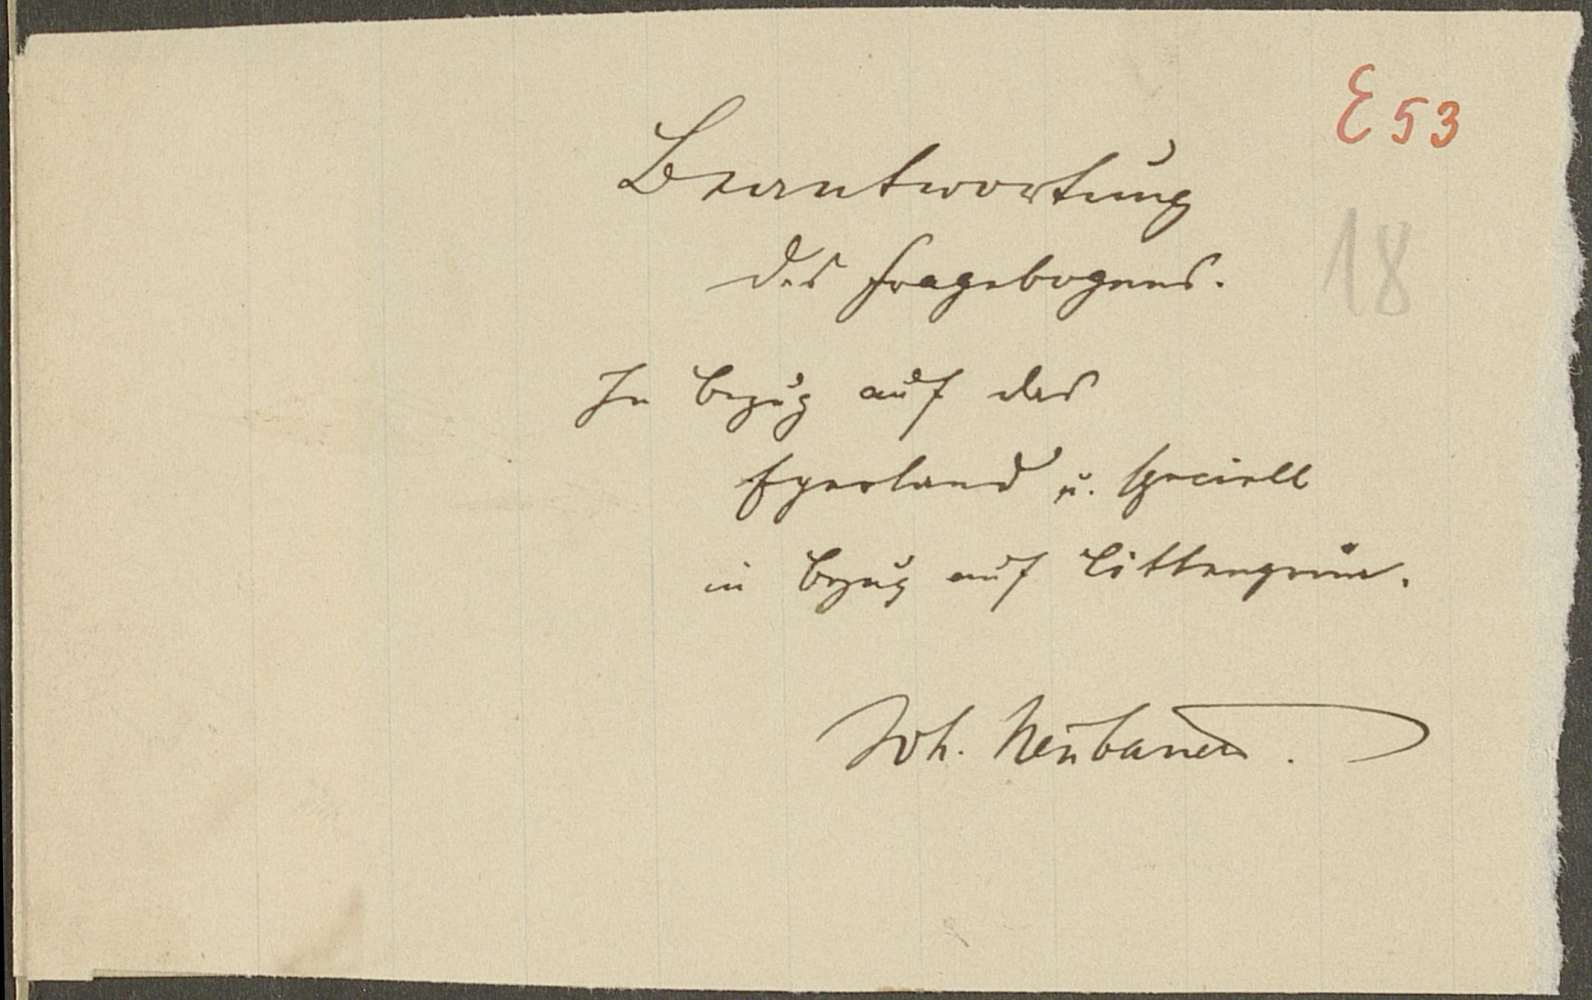 E 53
Beantwortung
des Fragebogens.
18
In Bezug auf das
Egerland u. speciell
in Bezug auf Littengrün.
Joh. Neubauer.